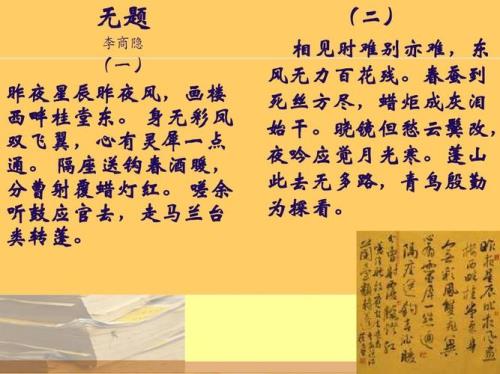 无题
李商隐
（一）
昨夜星辰昨夜风，画楼
西畔桂堂东。 身无彩凤
双飞翼，心有灵犀一点
通。 隔座送钩春酒暖，
分曹射覆蜡灯红。 嗟余
听鼓应官去，走马兰台
类转蓬。
（二）
相见时难别亦难，东
风无力百花残。春蚕到
死丝方尽，蜡炬成灰泪
始干。晓镜但愁云鬓改，
夜吟应觉月光寒。蓬山
此去无多路，青鸟殷勤
为探看。